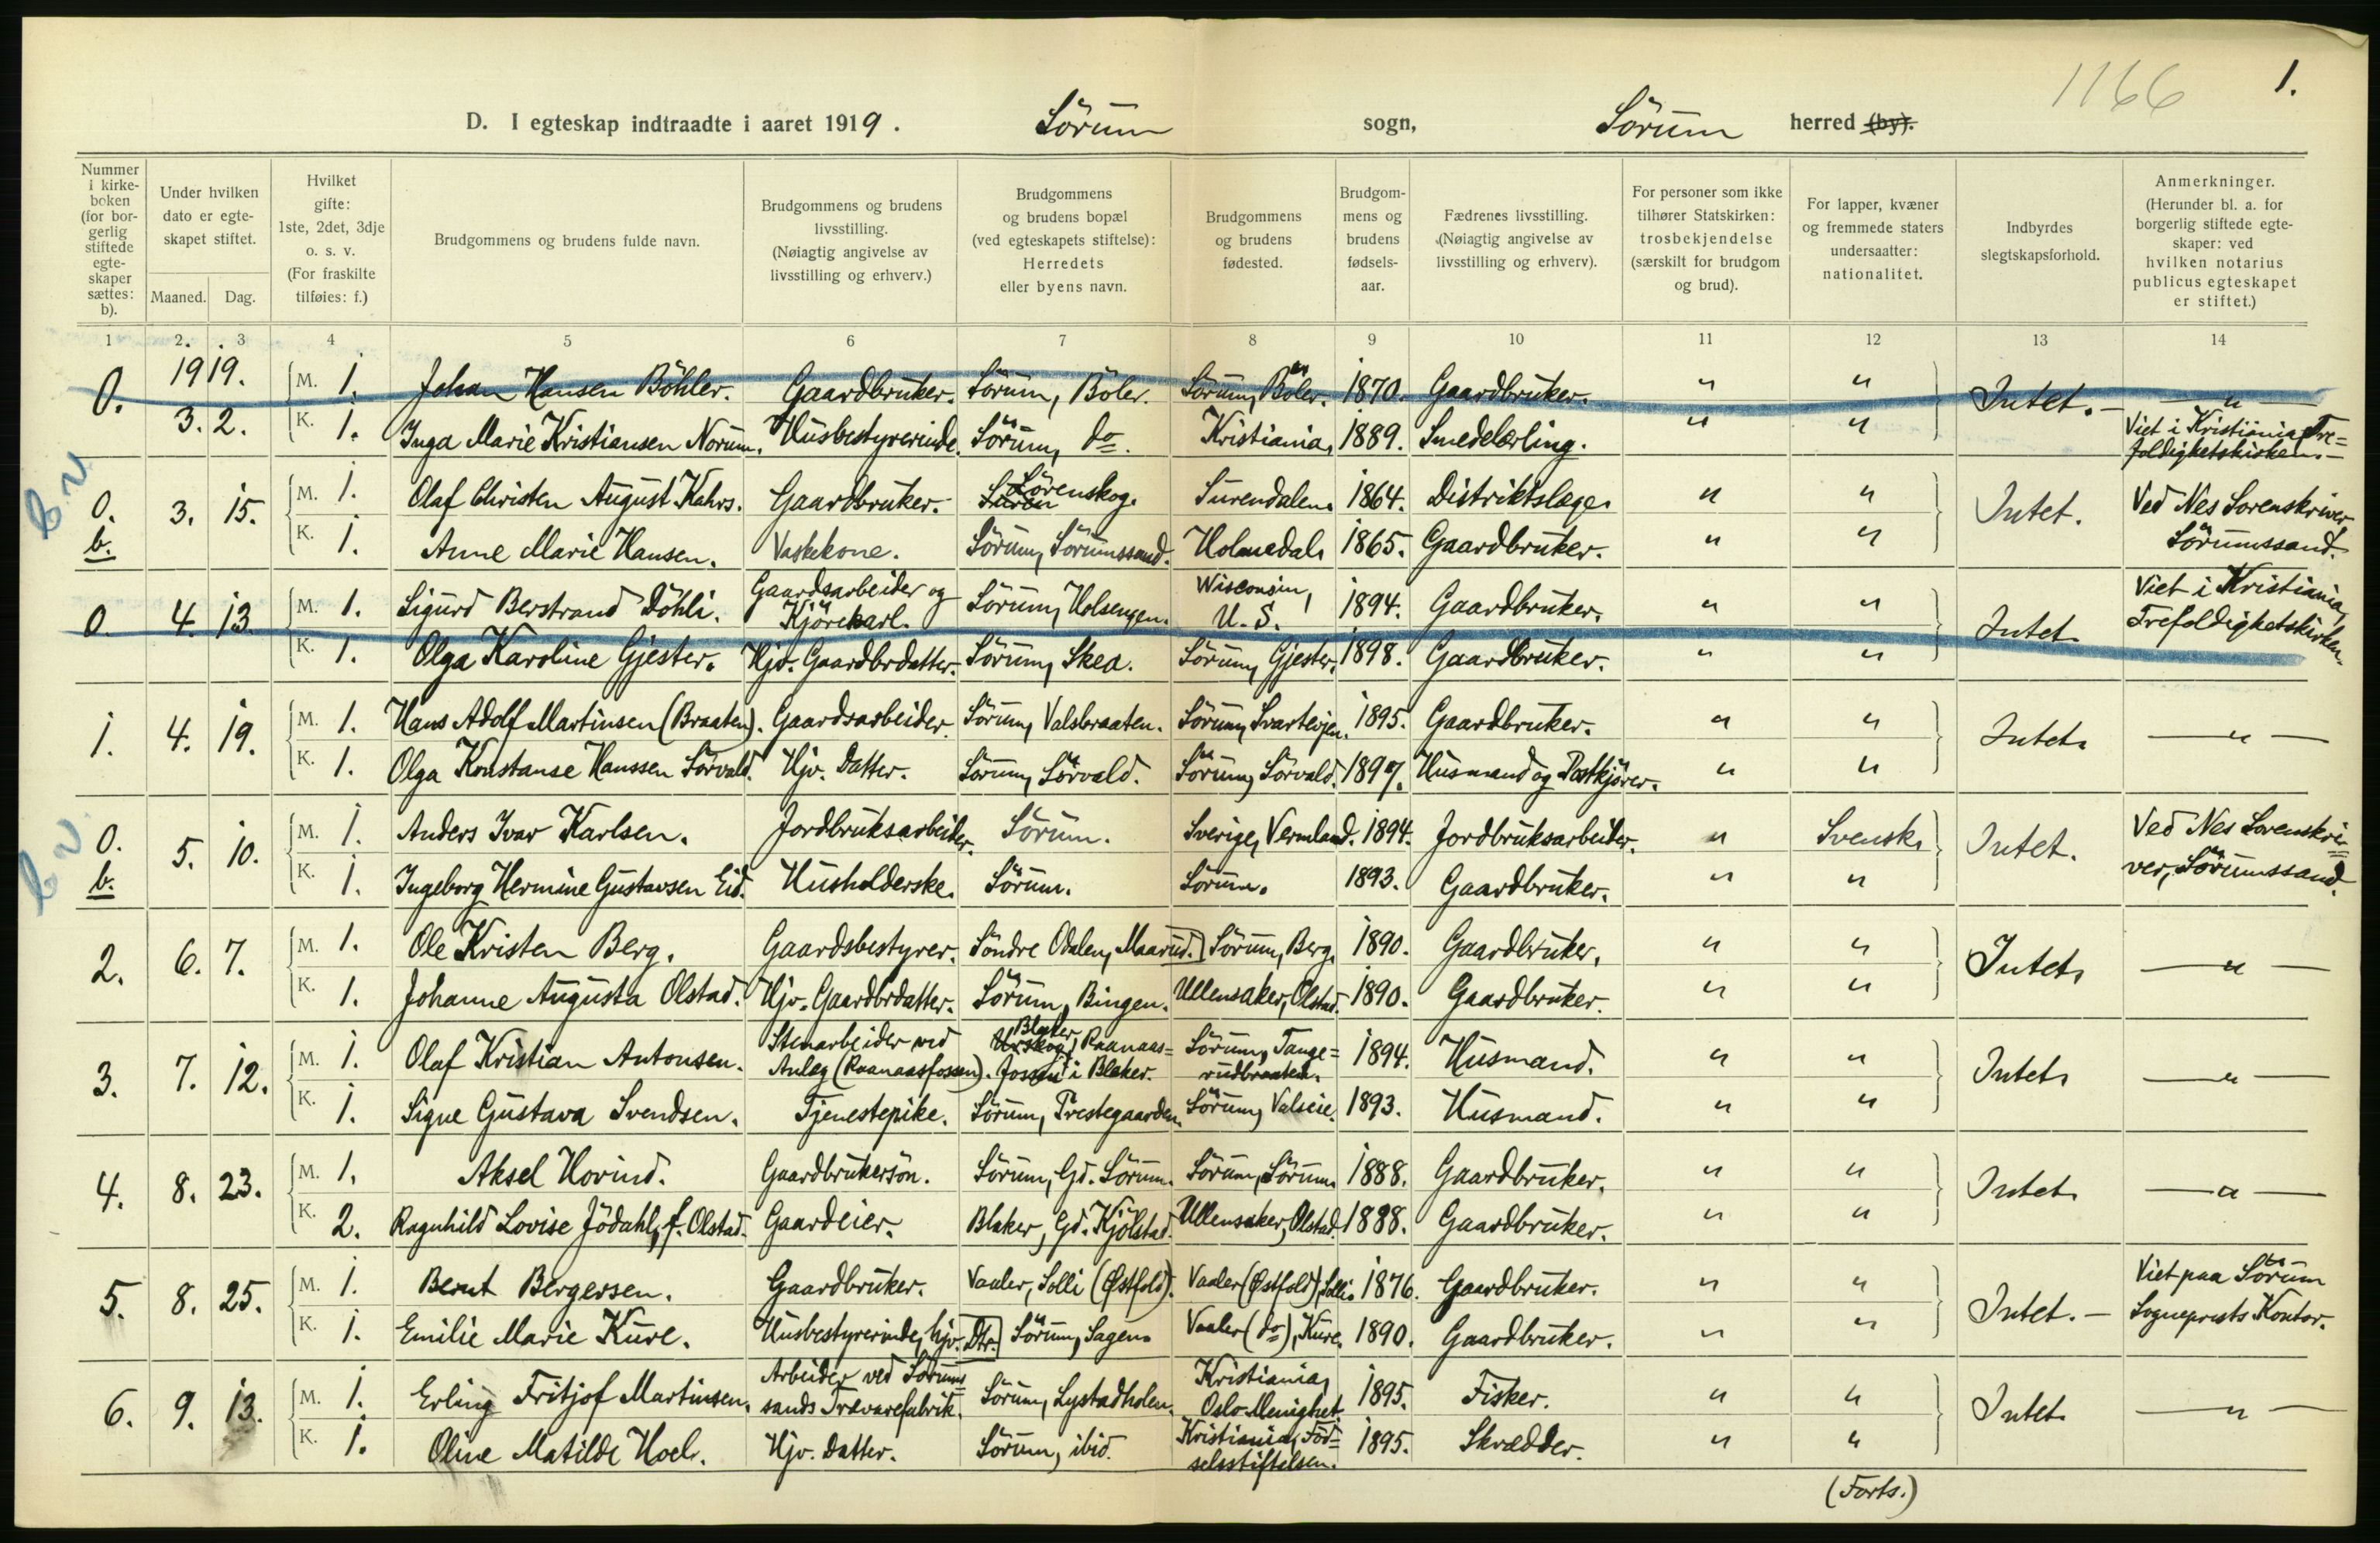 1166 1.
D. I egteskap indtraadte i aaret 1919. Sörum sogn, Sörum herred (by).
Nummer i kirke-boken (for bor-gerlig stiftede egte-skaper sættes: b).
Under hvilken dato er egte-skapet stiftet.
Maaned. Dag.
Hvilket gifte: 1ste, 2det, 3dje o. s. v. (For fraskilte tilføies: f.)
Brudgommens og brudens fulde navn.
Brudgommens og brudens livsstilling. (Nøiagtig angivelse av livsstilling og erhverv.)
Brudgommens og brudens bopæl (ved egteskapets stiftelse): Herredets eller byens navn.
Brudgommens og brudens fødested.
Brudgom-mens og brudens fødsels-aar.
Fædrenes livsstilling. (Nøiagtig angivelse av livsstilling og erhverv).
For personer som ikke tilhører Statskirken: trosbekjendelse (særskilt for brudgom og brud).
For lapper, kvæner og fremmede staters undersaatter: nationalitet.
Indbyrdes slegtskapsforhold.
Anmerkninger. (Herunder bl. a. for borgerlig stiftede egte-skaper: ved hvilken notarius publicus egteskapet er stiftet.)
1 2. 3 4 5 6 7 8 9 10 11 12 13 14
0. 1919. M. 1. Johan Hansen Böhler. Gaardbruker. Sörum, Böler. Sörum, Böler. 1870. Gaardbruker. " " Intet. — " —
3. 2. K. 1. Inga Marie Kristiansen Norum. Husbestyrerinde. Sörum, do. Kristiania, 1889. Smedelærling. " " Viet i Kristiania, Tre=foldighetskirken.—
0. b. 3. 15. M. 1. Olaf Christen August Kahrs. Gaardbruker. Lörenskog. Surendalen. 1864. Distriktslæge. " " Intet. Ved Nes Sorenskriver, Sörumssand.
K. 1. Anne Marie Hansen. Vaskekone. Sörum, Sörumssand. Holmedal. 1865. Gaardbruker. " "
0. 4. 13. M. 1. Sigurd Berstrand Döhli. Gaardsarbeider og Kjörekarl. Sörum, Holsengen. Wisconsin, U. S. 1894. Gaardbruker. " " Intet. Viet i Kristiania, Trefoldighetskirken.
K. 1. Olga Karoline Gjester. Hjv. Gaardbrdatter. Sörum, Skea. Sörum, Gjester. 1898. Gaardbruker. " "
1. 4. 19. M. 1. Hans Adolf Martinsen (Braaten). Gaardsarbeider. Sörum, Valsbraaten. Sörum, Svartevjen. 1895. Gaardbruker. " " Intet. — " —
K. 1. Olga Konstanse Hanssen Sörvald. Hjv. Datter. Sörum, Sörvald. Sörum, Sörvald. 1897. Husmand og Postkjörer. " "
0. b. 5. 10. M. 1. Anders Ivar Karlsen. Jordbruksarbeider. Sörum. Sverige, Vermland. 1894. Jordbruksarbeider. " Svensk. Intet. Ved Nes Sorenskri=ver, Sörumssand.
K. 1. Ingeborg Hermine Gustavsen Eid. Husholderske. Sörum. Sörum. 1893. Gaardbruker. " "
2. 6. 7. M. 1. Ole Kristen Berg. Gaardsbestyrer. Söndre Odalen, Maarud. Sörum, Berg. 1890. Gaardbruker. " " Intet. — " —
K. 1. Johanne Augusta Olstad. Hjv. Gaardbrdatter. Sörum, Bingen. Ullensaker, Olstad. 1890. Gaardbruker. " "
3. 7. 12. M. 1. Olaf Kristian Antonsen. Stenarbeider ved Anlæg (Raanaasfossen). Blaker Urskog, Raanaas=fossen i Blaker. Sörum, Tange=rudbraaten. 1894. Husmand. " " Intet. — " —
K. 1. Signe Gustava Svendsen. Tjenestepike. Sörum, Prestegaarden. Sörum, Valseie. 1893. Husmand. " "
4. 8. 23. M. 1. Aksel Hovind. Gaardbrukersön. Sörum, Gd. Sörum. Sörum, Sörum. 1888. Gaardbruker. " " Intet. — " —
K. 2. Ragnhild Lovise Jödahl, f. Olstad. Gaardeier. Blaker, Gd. Kjölstad. Ullensaker, Olstad. 1888. Gaardbruker. " "
5. 8. 25. M. 1. Bernt Bergersen. Gaardbruker. Vaaler, Solli (Østfold). Vaaler (Østfold), Solli. 1876. Gaardbruker. " " Intet. — Viet paa Sörum Sogneprests Kontor.
K. 1. Emilie Marie Kure. Husbestyrerinde, hjv. Dtr. Sörum, Sagen. Vaaler (do), Kure. 1890. Gaardbruker. " "
6. 9. 13. M. 1. Erling Fritjof Martinsen. Arbeider ved Sörums=sands Trævarefabrik. Sörum, Lystadholen. Kristiania, Oslo Menighet. 1895. Fisker. " " Intet. — " —
K. 1. Oline Matilde Hoel. Hjv. Datter. Sörum, ibid. Kristiania, Föd=selsstiftelsen. 1895. Skrædder. " "
(Forts.)